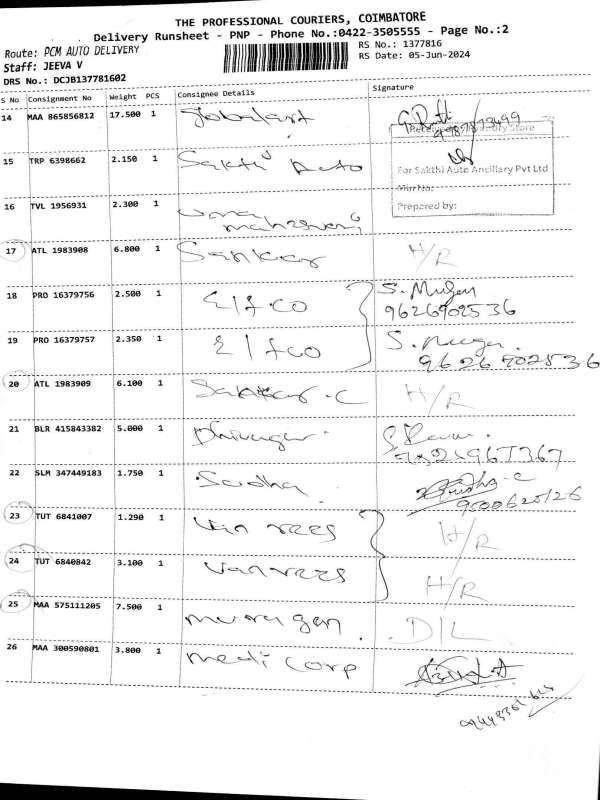 THE PROFESSIONAL COURIERS, COIMBATORE
Delivery Runsheet - PNP - Phone No.:0422-3505555 - Page No.:2
Route: PCM AUTO DELIVERY
RS No.: 1377816
Staff: JEEVA V
RS Date: 05-Jun-2024
DRS No.: DCJB137781602
S No Consignment No Weight PCS Consignee Details Signature
14 MAA 865856812 17.500 1
Store
15 TRP 6398662 2.150 1 Sakthi Auto
For Sakthi Auto Ancillary Pvt Ltd
Prepared by:
16 TVL 1956931 2.300 1 Uma
maheswari
17 ATL 1983908 6.800 1 Sankar H/R
18 PRO 16379756 2.500 1 Elfco S. Mugan
9626902536
19 PRO 16379757 2.350 1 Elfco S.
9626902536
20 ATL 1983909 6.100 1 H/R
21 BLR 415843382 5.000 1
22 SLM 347449183 1.750 1 Sudha
23 TUT 6841007 1.290 1 Van rees H/R
24 TUT 6840842 3.100 1 Van rees H/R
25 MAA 575111205 7.500 1 murugan D/L
26 MAA 300590801 3.800 1 medi corp